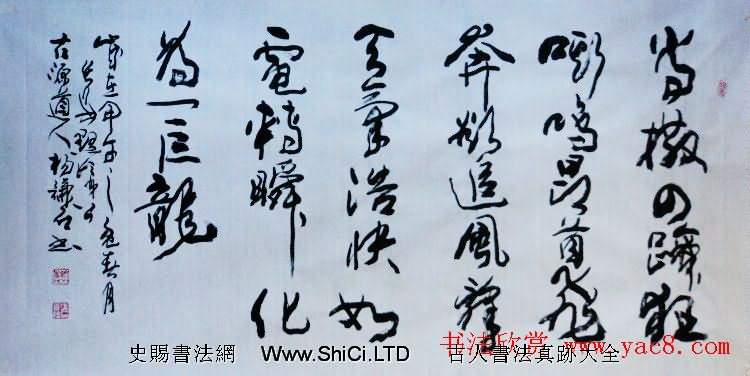 撒四蹄狂
嘶鳴昂首飛
奔欲追風
氣浩快如
電轉瞬化
為一巨龍
歲在甲午之春月
道人楊謙書
史賜書法網 Www.ShiCi.LTD 古人書法真跡大全
书法欣赏 www.yac8.com